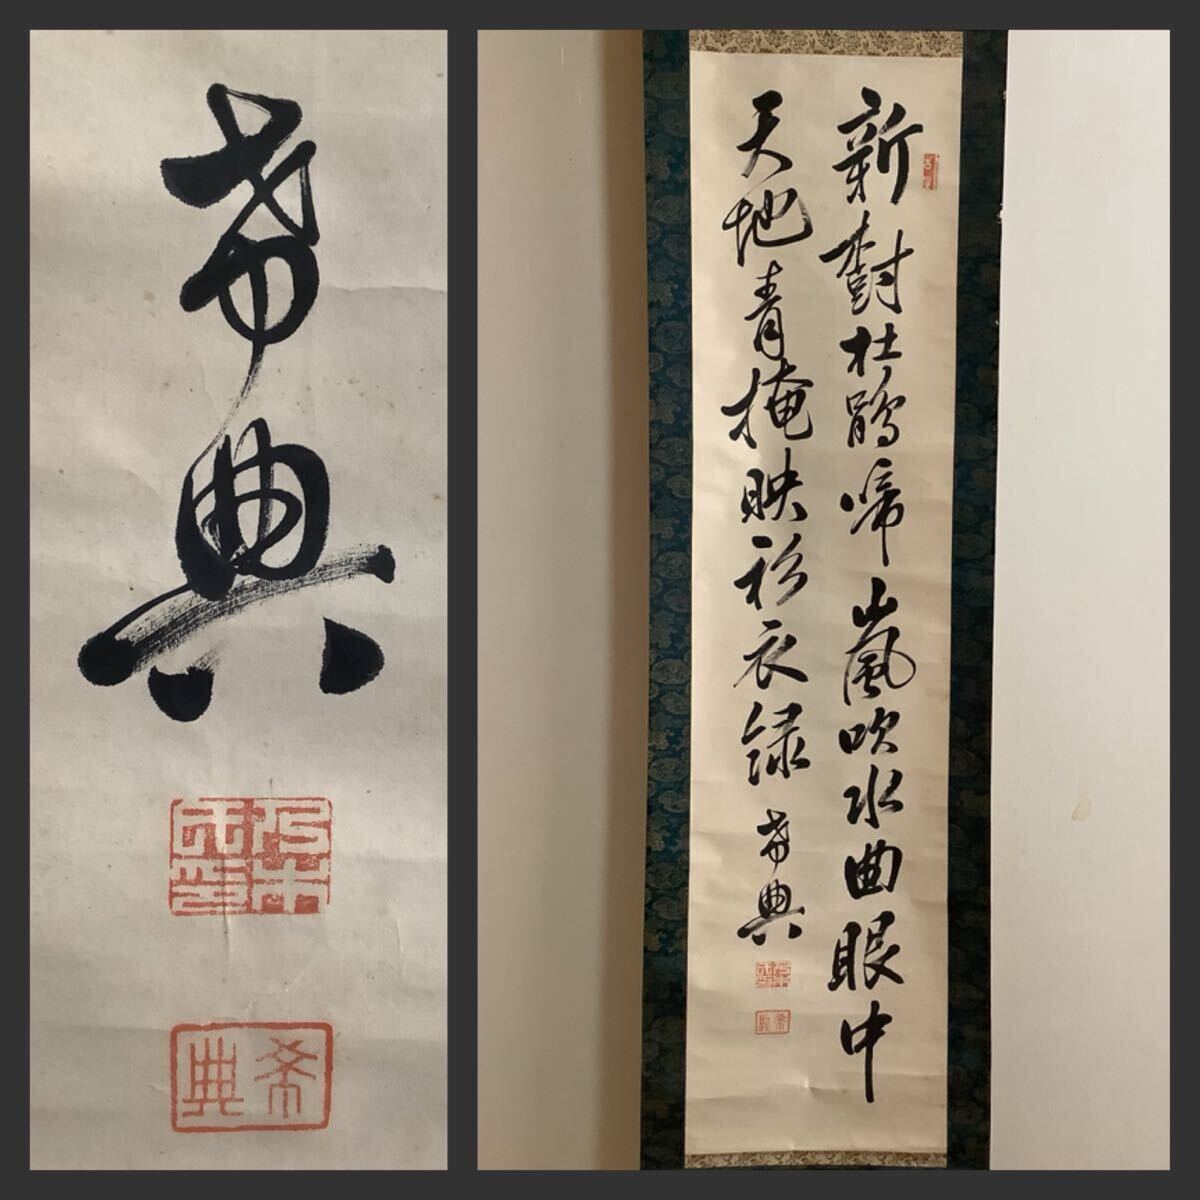 新樹杜鵑啼嵐吹水曲眼中
天地青掩映衫衣緑 希典
希典
希典